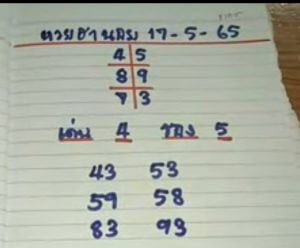 หวยฮานอย 17-5-65
4 5
8 9
7 3
เด่น 4 รอง 5
43 53
59 58
83 93